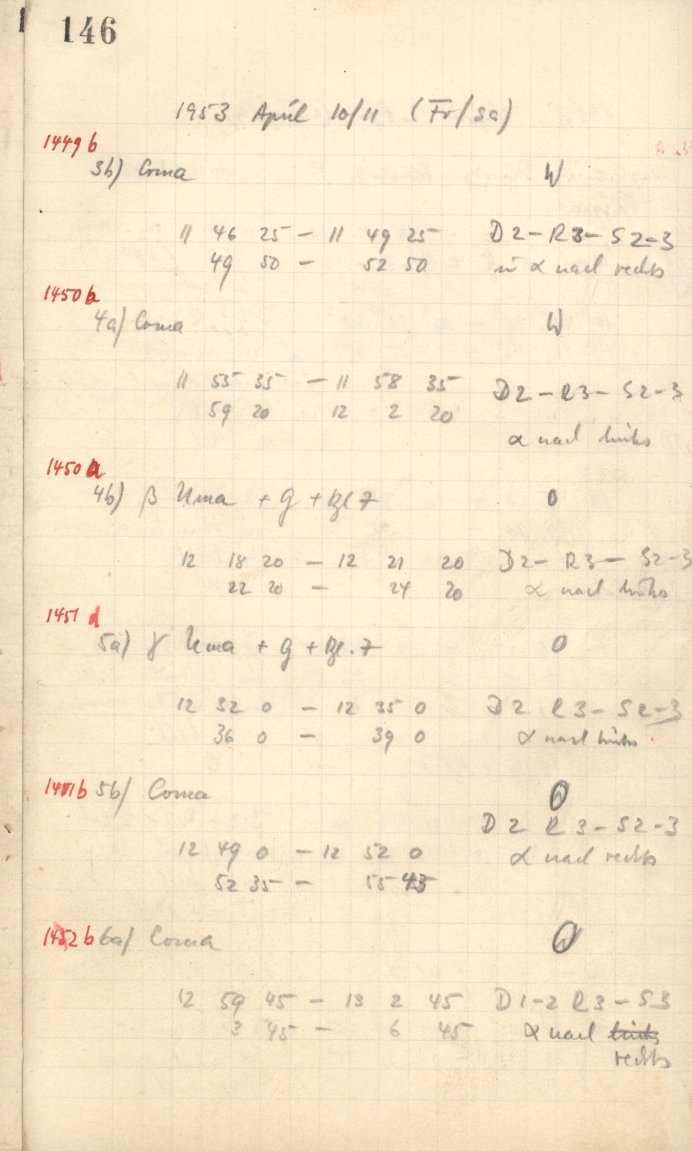 146
1953 April 10/11 (Fr/Sa)
1449 b
3b) Coma W
11 46 25 – 11 49 25 D2–R3–S2–3
49 50 – 52 50 in α nach rechts
1450 a
4a) Coma W
11 55 35 – 11 58 35 D2–R3–S2–3
59 20 12 2 20
α nach links
1450
4b) β Uma + G + Bl 7 O
12 18 20 – 12 21 20 D2–R3–S2–3
22 20 – 24 20 α nach links
1451 d
5a) γ Uma + G + Bl. 7 O
12 32 0 – 12 35 0 D2 R3–S2–3
36 0 – 39 0 α nach links
1451 b 5b) Coma O
D2 R3–S2–3
12 49 0 – 12 52 0 α nach rechts
52 35 – 55 45
1452 b 6a) Coma
12 59 45 – 13 2 45 D1–2 R3–S3
3 45 – 6 45 α nach links
rechts